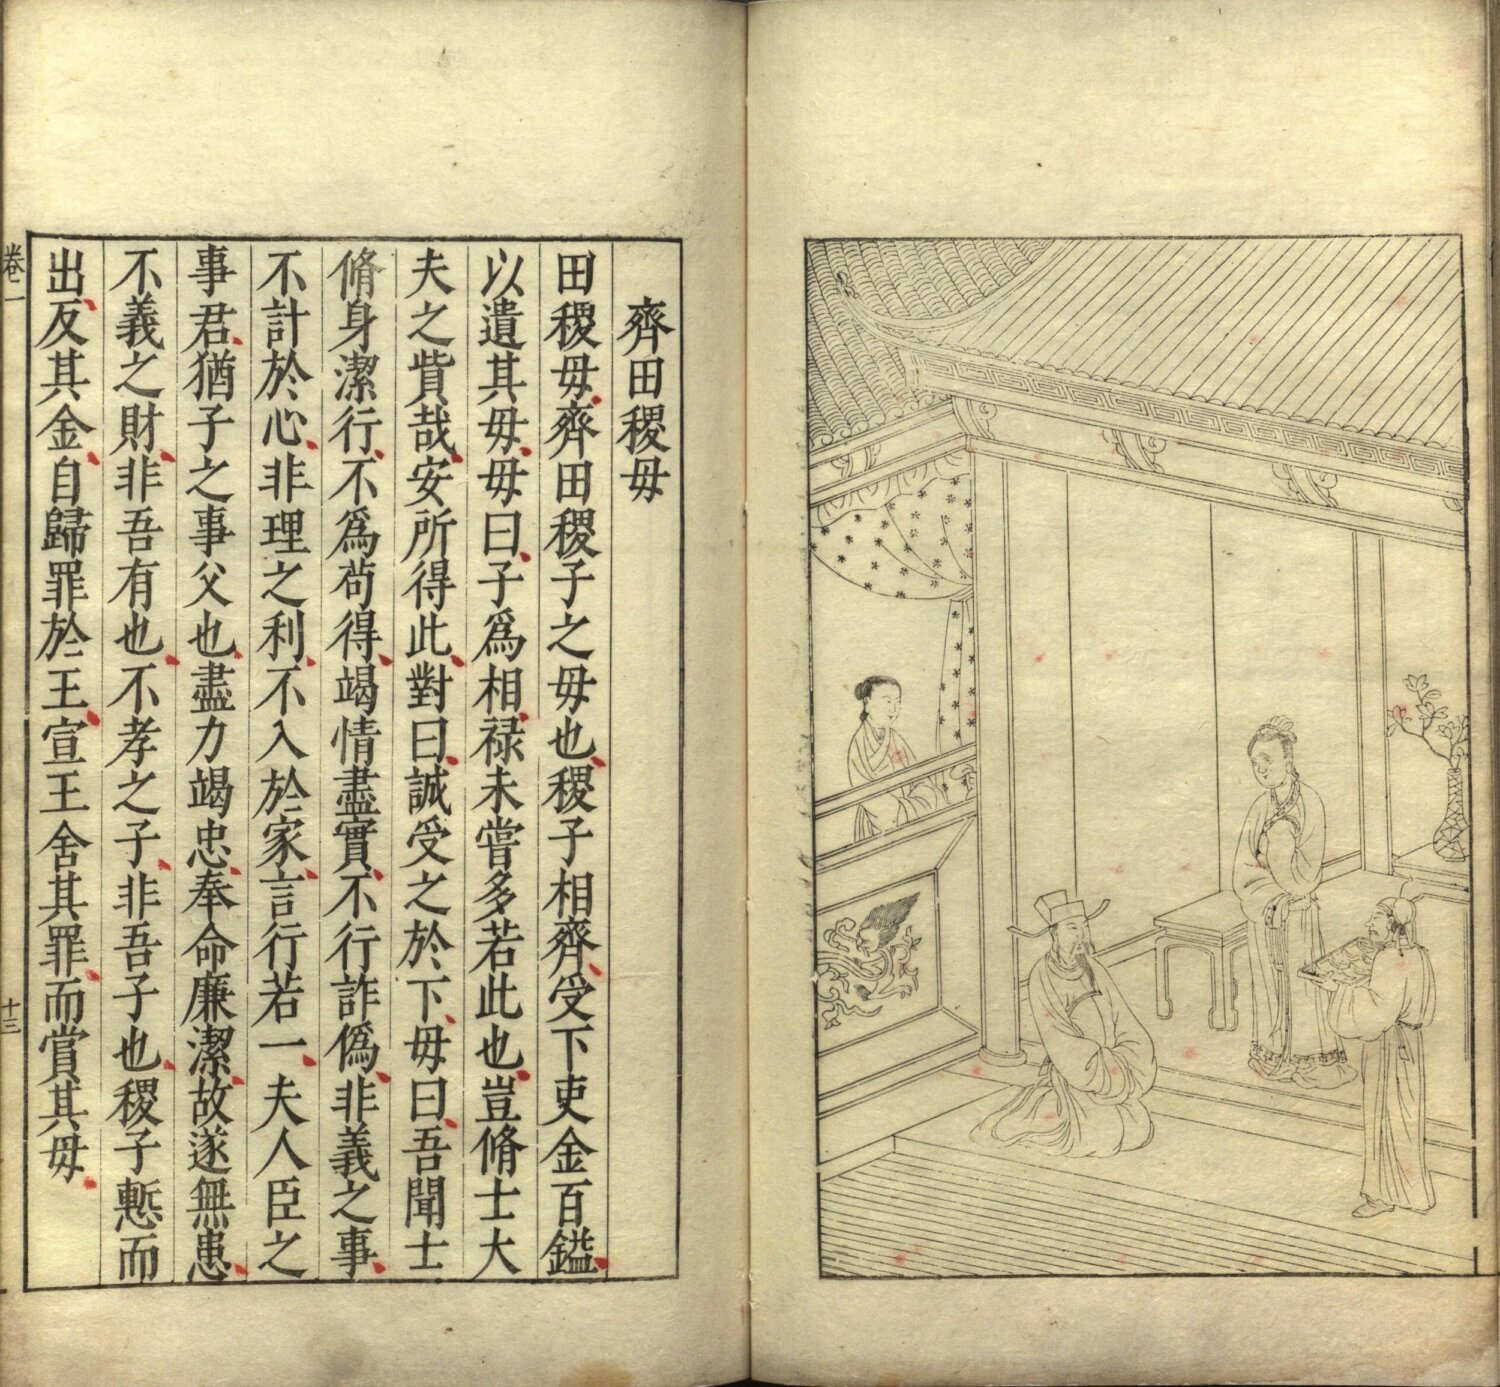 齊田稷母
田稷母齊田稷子之母也稷子相齊受下吏金百鎰
以遺其母母曰子爲相祿未嘗多若此也豈脩士大
夫之貲哉安所得此對曰誠受之於下母曰吾聞士
脩身潔行不爲茍得竭情盡實不行詐僞非義之事
不計於心非理之利不入於家言行若一夫人臣之
事君猶子之事父也盡力竭忠奉命廉潔故遂無患
不義之財非吾有也不孝之子非吾子也稷子慙而
出反其金自歸罪於王宣王舍其罪而賞其母
卷一
十三